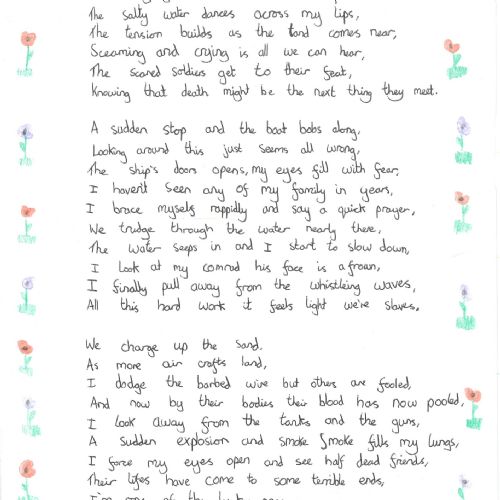 The salty water dances across my lips,
The tension builds as the land comes near,
Screaming and crying is all we can hear,
The scared soldiers get to their feat,
Knowing that death might be the next thing they meet.

A sudden stop and the boat bobs along,
Looking around this just seems all wrong,
The ship's doors opens, my eyes fill with fear,
I haven't seen any of my family in years,
I brace myself rappidly and say a quick prayer,
We trudge through the water nearly there,
The water seeps in and I start to slow down,
I look at my comrad his face is a frown,
I finally pull away from the whistleing waves,
All this hard work it feels light we're slaves.

We charge up the sand.
As more air crafts land,
I dodge the barbed wire but others are fooled,
And now by their bodies their blood has now pooled,
I look away from the tanks and the guns,
A sudden explosion and smoke smoke fills my lungs,
I force my eyes open and see half dead friends,
Their lifes have come to some terrible ends,